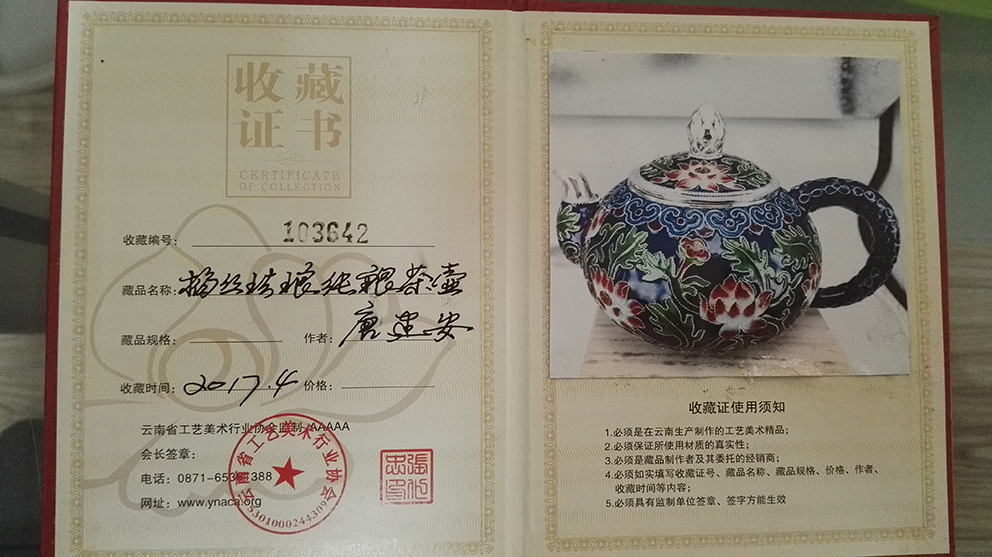 收藏
证书
CERTIFICATE
OF COLLECTION
收藏编号: 103642
藏品名称: 掐丝珐琅纯银茶壶
藏品规格: 作者: 唐建安
收藏时间: 2017.4 价格:
云南省工艺美术行业协会监制 AAAAA
会长签章:
电话:
网址: www.ynaca.org
云南省工艺美术行业协会
張化忠印
收藏证使用须知
1.必须是在云南生产制作的工艺美术精品;
2.必须保证所使用材质的真实性;
3.必须是藏品制作者及其委托的经销商;
4.必须如实填写收藏证号、藏品名称、藏品规格、价格、作者、
收藏时间等内容;
5.必须具有监制单位签章、签字方能生效